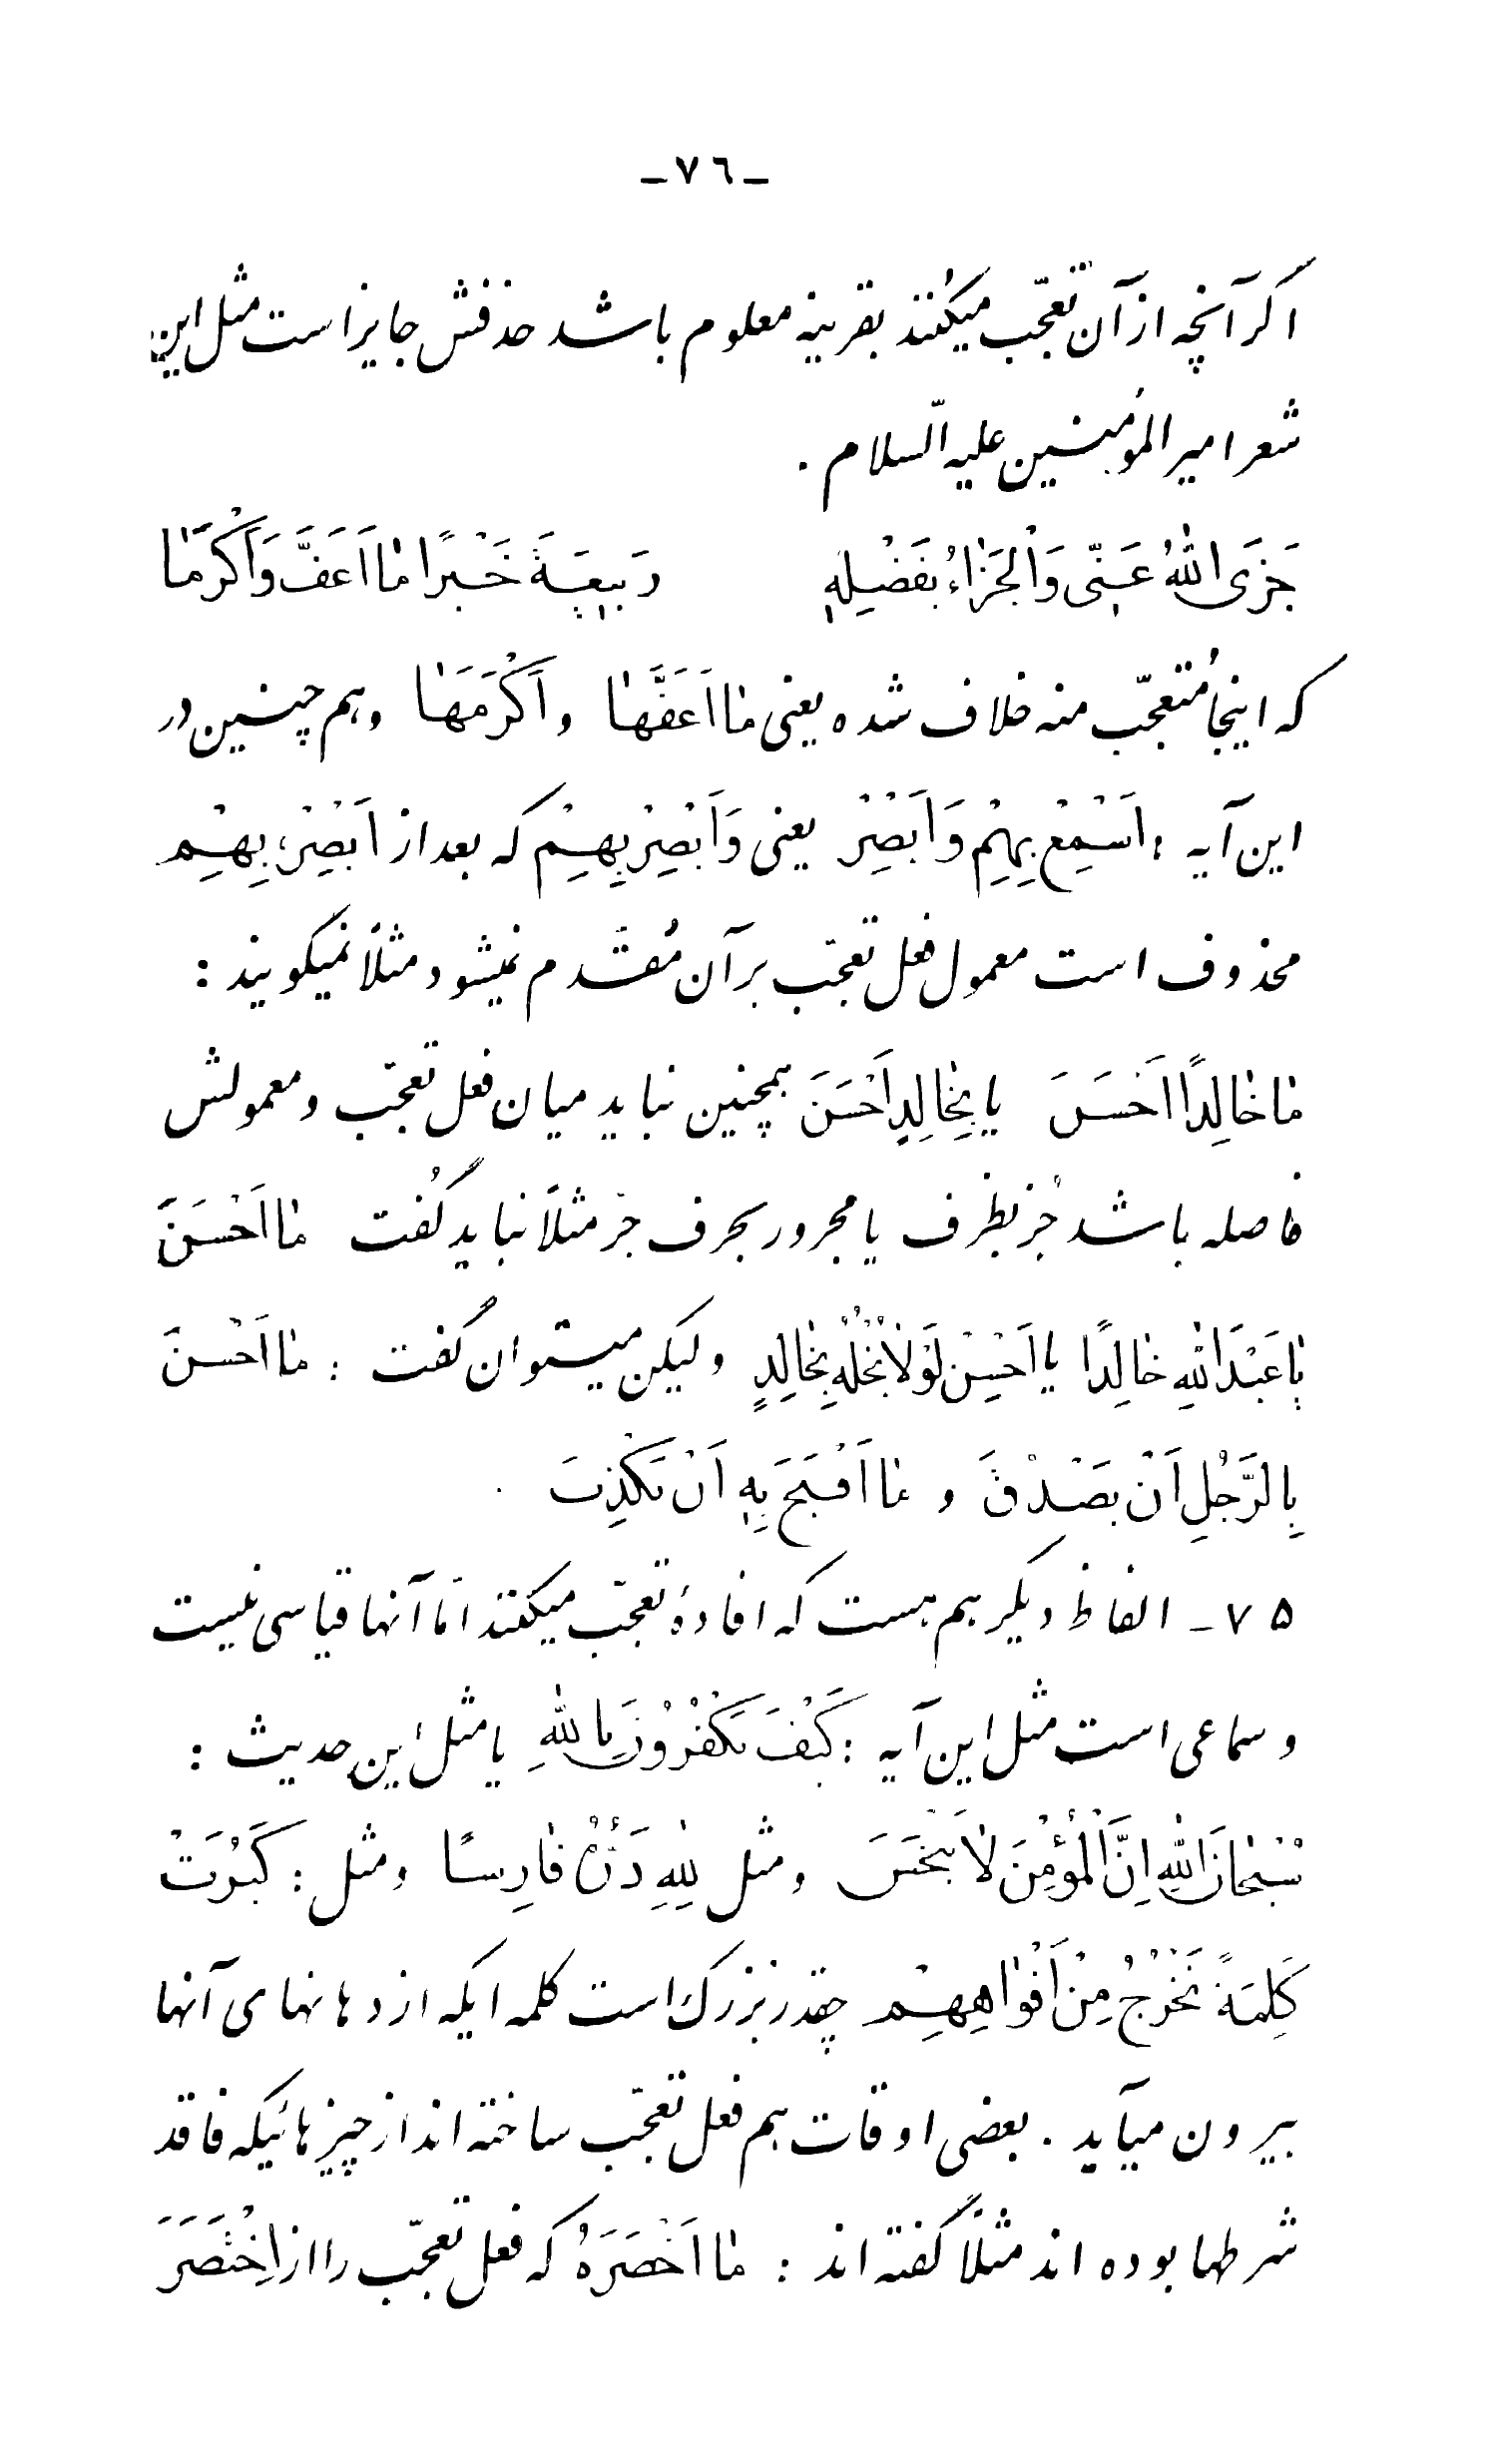 -٧٦-
اگر آنچه از آن تعجّب میکُنند بقرینه معلوم باشد حذفش جایز است مثل این
شعر امیر المؤمنین علیه السّلام .
جَزَی اللّٰهُ عَنّی وَالْجَزٰاءُ بِفَضْلِهِ رَبیعَةَ خَیْرًا مٰا اَعَفَّ وَاَکْرَمَا
که اینجا مُتعجّب منه حذف شده یعنی مٰا اَعَفَّهٰا و اَکْرَمَهٰا و هم چنین در
این آیه : اَسْمِعْ بِهِمْ وَاَبْصِرْ یعنی وَاَبْصِرْ بِهِمْ که بعد از اَبْصِرْ، بِهِمْ
محذوف است معمول فعل تعجّب بر آن مُقدّم نمیشود مثلاً نمیگویند :
مٰا خٰالِدًا اَحْسَنَ یا بِخٰالِدٍ اَحْسَنَ همچنین نباید میان فعل تعجّب و معمولش
فاصله باشد جُز بظرف یا مجرور بحرف جرّ مثلاً نباید گُفت مٰا اَحْسَنَ
یٰا عَبْدَ اللّٰهِ خٰالِدًا یا اَحْسِنْ لَوْلٰا بُخْلُهُ بِخٰالِدٍ ولیکن میتوان گُفت : مٰا اَحْسَنَ
بِالرَّجُلِ اَنْ یَصْدُقَ و مٰا اَقْبَحَ بِهِ اَنْ یَکْذِبَ .
٧٥- الفاظ دیگر هم هست که افادهٔ تعجّب میکنند امّا آنها قیاسی نیست
و سماعی است مثل این آیه : کَیْفَ تَکْفُرُوْنَ بِاللّٰهِ یا مثل این حدیث :
سُبْحٰانَ اللّٰهِ اِنَّ الْمُؤْمِنَ لٰا یَنْجَسُ و مثل لِلّٰهِ دَرُّهُ فٰارِسًا و مثل : کَبُرَتْ
کَلِمَةً تَخْرُجُ مِنْ اَفْوٰاهِهِمْ چقدر بزرگ است کلمه ایکه از دهانهای آنها
بیرون میآید . بعضی اوقات هم فعل تعجّب ساخته اند از چیزهائیکه فاقد
شرطها بوده اند مثلاً گفته اند : مٰا اَخْصَرَهُ که فعل تعجّب را از اِخْتَصَرَ